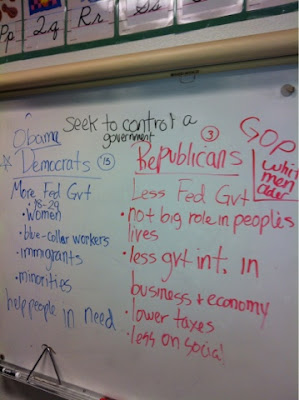 Pp Qq Rr Ss
Seek to control a
government
Obama
Democrats 15
More Fed Gvt
• 18-29
• women
• blue-collar workers
• immigrants
• minorities
help people in need
3
Republicans
GOP
white
men
older
Less Fed Gvt
• not big role in people's
lives
• less gvt int. in
business + economy
• lower taxes
• less on social